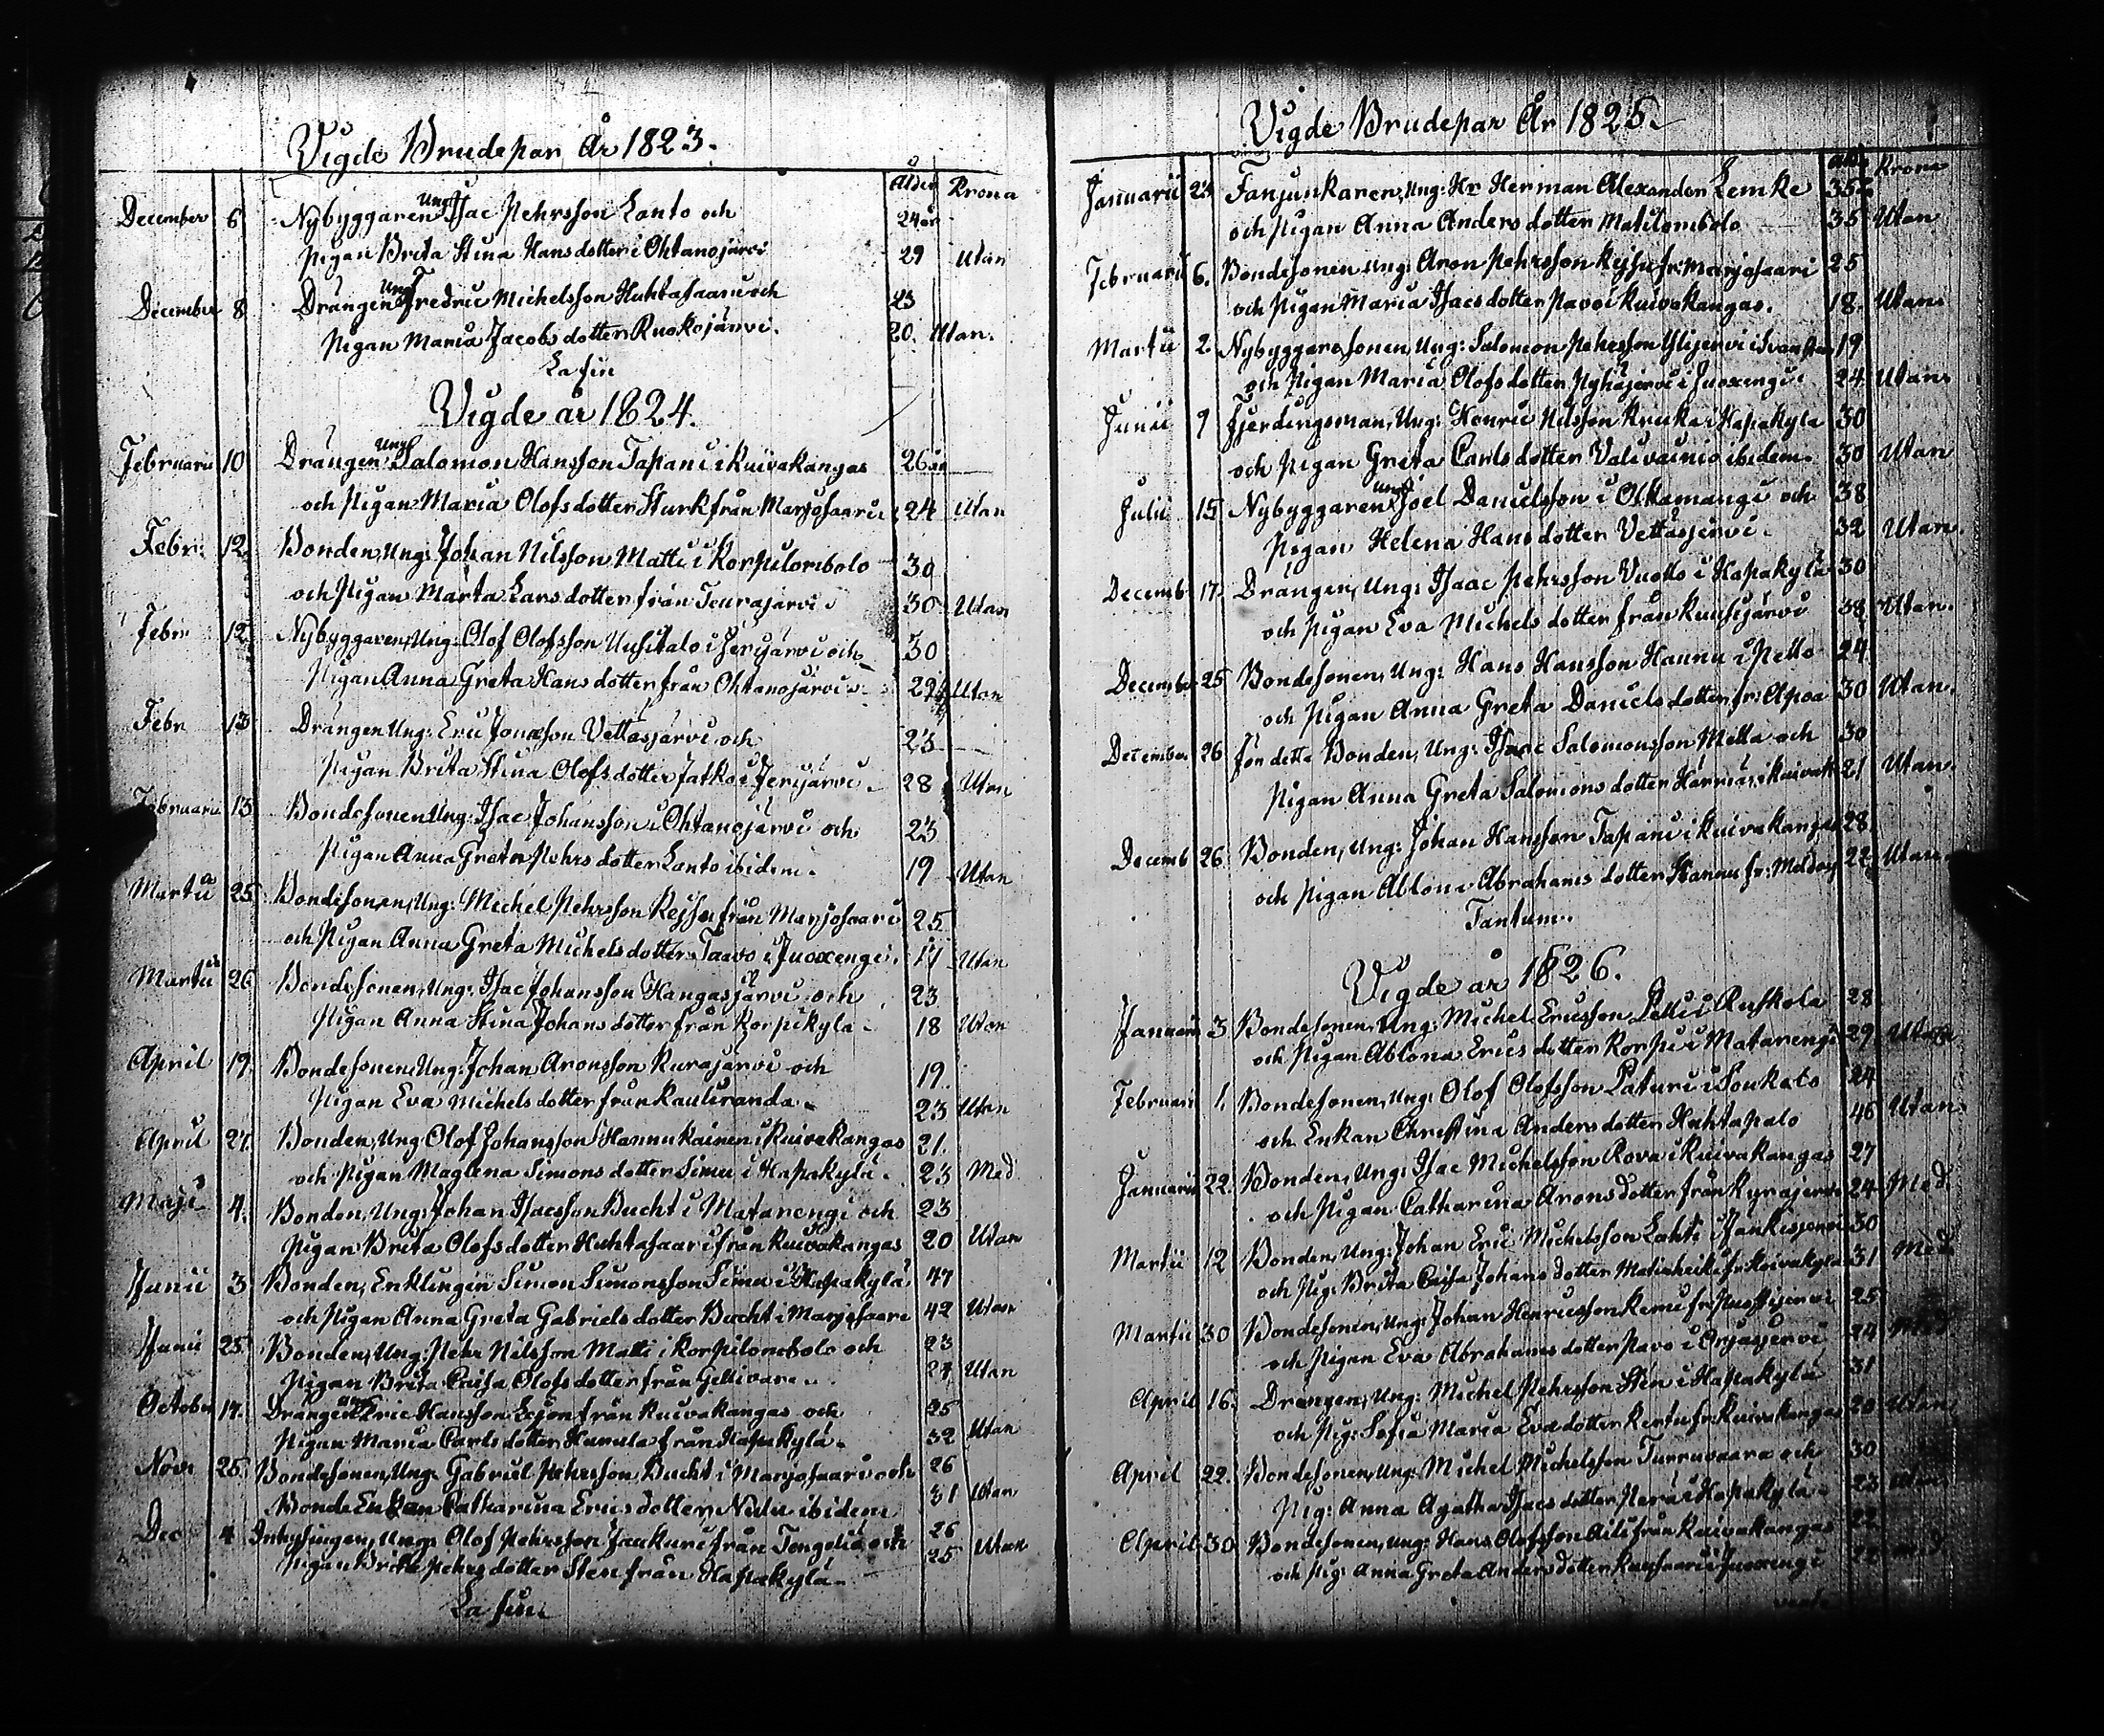 Vigde Brudepar År 1823.
Ålder Krona
December 6 Nybyggaren Ung: Isac Pehrsson Lanto och 24 år
Pigan Brita Stina Hansdotter i Ohtanajärvi 29 Utan
December 8 Drängen Ung: Fredric Michelsson Huhtasaari och 23
Pigan Maria Jacobsdotter Ruokojärvi. 20. Utan.
La fin
Vigde år 1824.
Februarii 10 Drängen Ung: Salomon Hansson Tapani i Kuivakangas 26 år
och Pigan Maria Olofsdotter Sturk från Marjosaari 24 Utan
Febr: 12 Bonden, Ung: Johan Nilsson Matti i Korpilombolo 30
och Pigan Marta Larsdotter från Teurajärvi 30 Utan
Febr: 12 Nybyggaren, Ung: Olof Olofsson Uusitalo i Jerijärvi och 30
Pigan Anna Greta Hansdotter från Ohtanajärvi 29 Utan
Febr 13 Drängen Ung: Eric Jonasson Vettasjärvi och 23
Pigan Brita Stina Olofsdotter Jatko i Jerijärvi. 28 Utan
Februarii 13 Bondesonen Ung: Isac Johansson i Ohtanajärvi och 23
Pigan Anna Greta Pehrsdotter Lanto ibidem. 19 Utan
Martii 25 Bondesonen, Ung: Michel Pehrsson Kejsu från Marjosaari 25
och Pigan Anna Greta Michelsdotter Taavo i Juoxengi. 17 Utan
Martii 26 Bondesonen, Ung: Isac Johansson Kangasjärvi och 23
Pigan Anna Stina Johansdotter från Korpikylä 18 Utan
April 19. Bondesonen, Ung: Johan Aronsson Kurajärvi och 19.
Pigan Eva Michelsdotter från Kauliranda. 23 Utan
April 27. Bonden, Ung Olof Johansson Hannukainen i Kuivakangas 21.
och Pigan Maglena Simonsdotter Simu i Hapakylä. 23 Med
Maji 4. Bonden, Ung: Johan Isacsson Bucht i Matarengi och 23
Pigan Brita Olofsdotter Huhtasaari från Kuivakangas 20 Utan
Junii 3 Bonden, Enklingen Simon Simonsson Simu i Hapakylä 47
och Pigan Anna Greta Gabrielsdotter Bucht i Marjosaari 42 Utan
Junii 25. Bonden, Ung: Pehr Nilsson Matti i Korpilombolo och 23
Pigan Brita Caisa Olofsdotter från Gellivare. 27 Utan
October 14. Drängen Ung: Eric Hansson Lejon från Kuivakangas och 25
Pigan Maria Carlsdotter Hurula från Hapakylä. 32 Utan
Nov. 25. Bondesonen, Ung: Gabriel Pehrsson Bucht i Marjosaari och 26
Bonde Enkan Catharina Ericsdotter Nidu ibidem 31 Utan
Dec 4 Inhysingen, Ung: Olof Pehrsson Jaakuri från Tengeliö och 26
Pigan Brita Pehrsdotter Sten från Hapakylä 25 Utan
La fin.
Vigde Brudepar År 1825.
Ålder Krona
Januarii 23 Fanjunkaren, Ung: Hr Herman Alexander Lemke 35
och Pigan Anna Andersdotter Matilombolo 35 Utan
Februarii 6. Bondesonen Ung: Aron Pehrsson Kejsu fr: Marjosaari 25
och Pigan Maria Isacsdotter Pavo i Kuivakangas. 18. Utan
Martii 2. Nybyggaresonen, Ung: Salomon Pehrsson Ylijervi i Svanstein 19
och Pigan Maria Olofsdotter Pyhäjervi i Juoxengi 24 Utan
Junii 9 Fjerdingsman, Ung: Henric Nilsson Kruka i Hapakylä 30
och Pigan Greta Carlsdotter Valivainio ibidem. 30 Utan
Julii 15 Nybyggaren Ung: Joel Danielsson i Olkamangi och 38
Pigan Helena Hansdotter Vettasjervi. 32 Utan.
Decemb. 17. Drängen, Ung: Isaac Pehrsson Vuotto i Hapakylä 30
och Pigan Eva Michelsdotter från Kuusijärvi 38 Utan.
December 25 Bondesonen, Ung: Hans Hansson Hannu i Pello 24
och Pigan Anna Greta Danielsdotter fr: Apoa 30 Utan.
December 26 för detta Bonden, Ung: Isaac Salomonsson Mella och 30
Pigan Anna Greta Salomonsdotter Hannäs i Kuivak 21 Utan.
Decemb 26 Bonden, Ung: Johan Hansson Tapani i Kuivakangas 28
och Pigan Ablona Abrahamsdotter Hannu fr: 22 Utan.
Tantum.
Vigde år 1826.
Januarii 3 Bondesonen, Ung: Michel Ericsson Pelli i Ruskola 28
och Pigan Ablona Ericsdotter Korpi i Matarengi 29 Utan
Februarii 1. Bondesonen, Ung: Olof Olofsson Paturi i Soukalo 24
och Enkan Christina Andersdotter Huhtapalo 46 Utan
Januarii 22. Bonden, Ung: Isac Michelsson Rova i Kuivakangas 27
och Pigan Catharina Aronsdotter från Kyrajervi 24 Med.
Martii 12 Bonden, Ung: Johan Eric Michelsson Lahti i Jankisjervi 30
och Pig: Brita Caisa Johansdotter Matinheiki fr: Koivakylä 31 Med.
Martii 30 Bondesonen, Ung: Johan Henricsson Kemi fr: 25
och Pigan Eva Abrahamsdotter Pavo i Orjasjervi 24 Med
April 16. Drängen, Ung: Michel Pehrsson Sten i Hapakylä 31
och Pig: Sofia Maria Evadotter Kertu fr: Kuivakangas 20 Utan
April 22. Bondesonen, Ung: Michel Michelsson Turruvaara och 30
Pig: Anna Agatha Isacsdotter Perä i Hapakylä 23 Utan
April 30 Bondesonen, Ung: Hans Olofsson Aili från Kuivakangas 22
och Pig: Anna Greta Andersdotter i Juoxengi Med